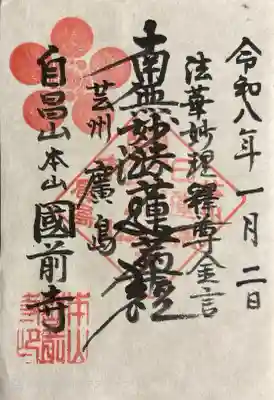 令和八年一月二日
法華妙理釋尊金言
南無妙法蓮華經
芸州廣島
自昌山本山國前寺